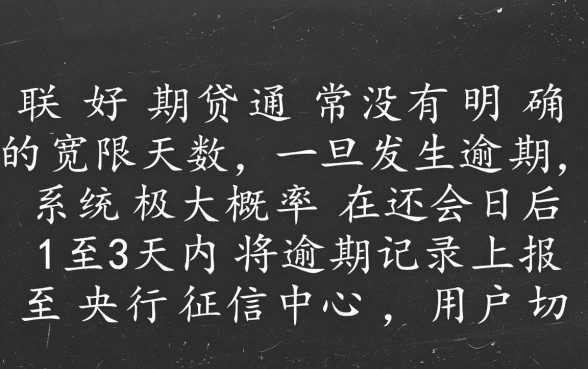 联好期贷通常没有明确
的宽限天数，一旦发生逾期，
系统极大概率在还会日后
1至3天内将逾期记录上报
至央行征信中心，用户切